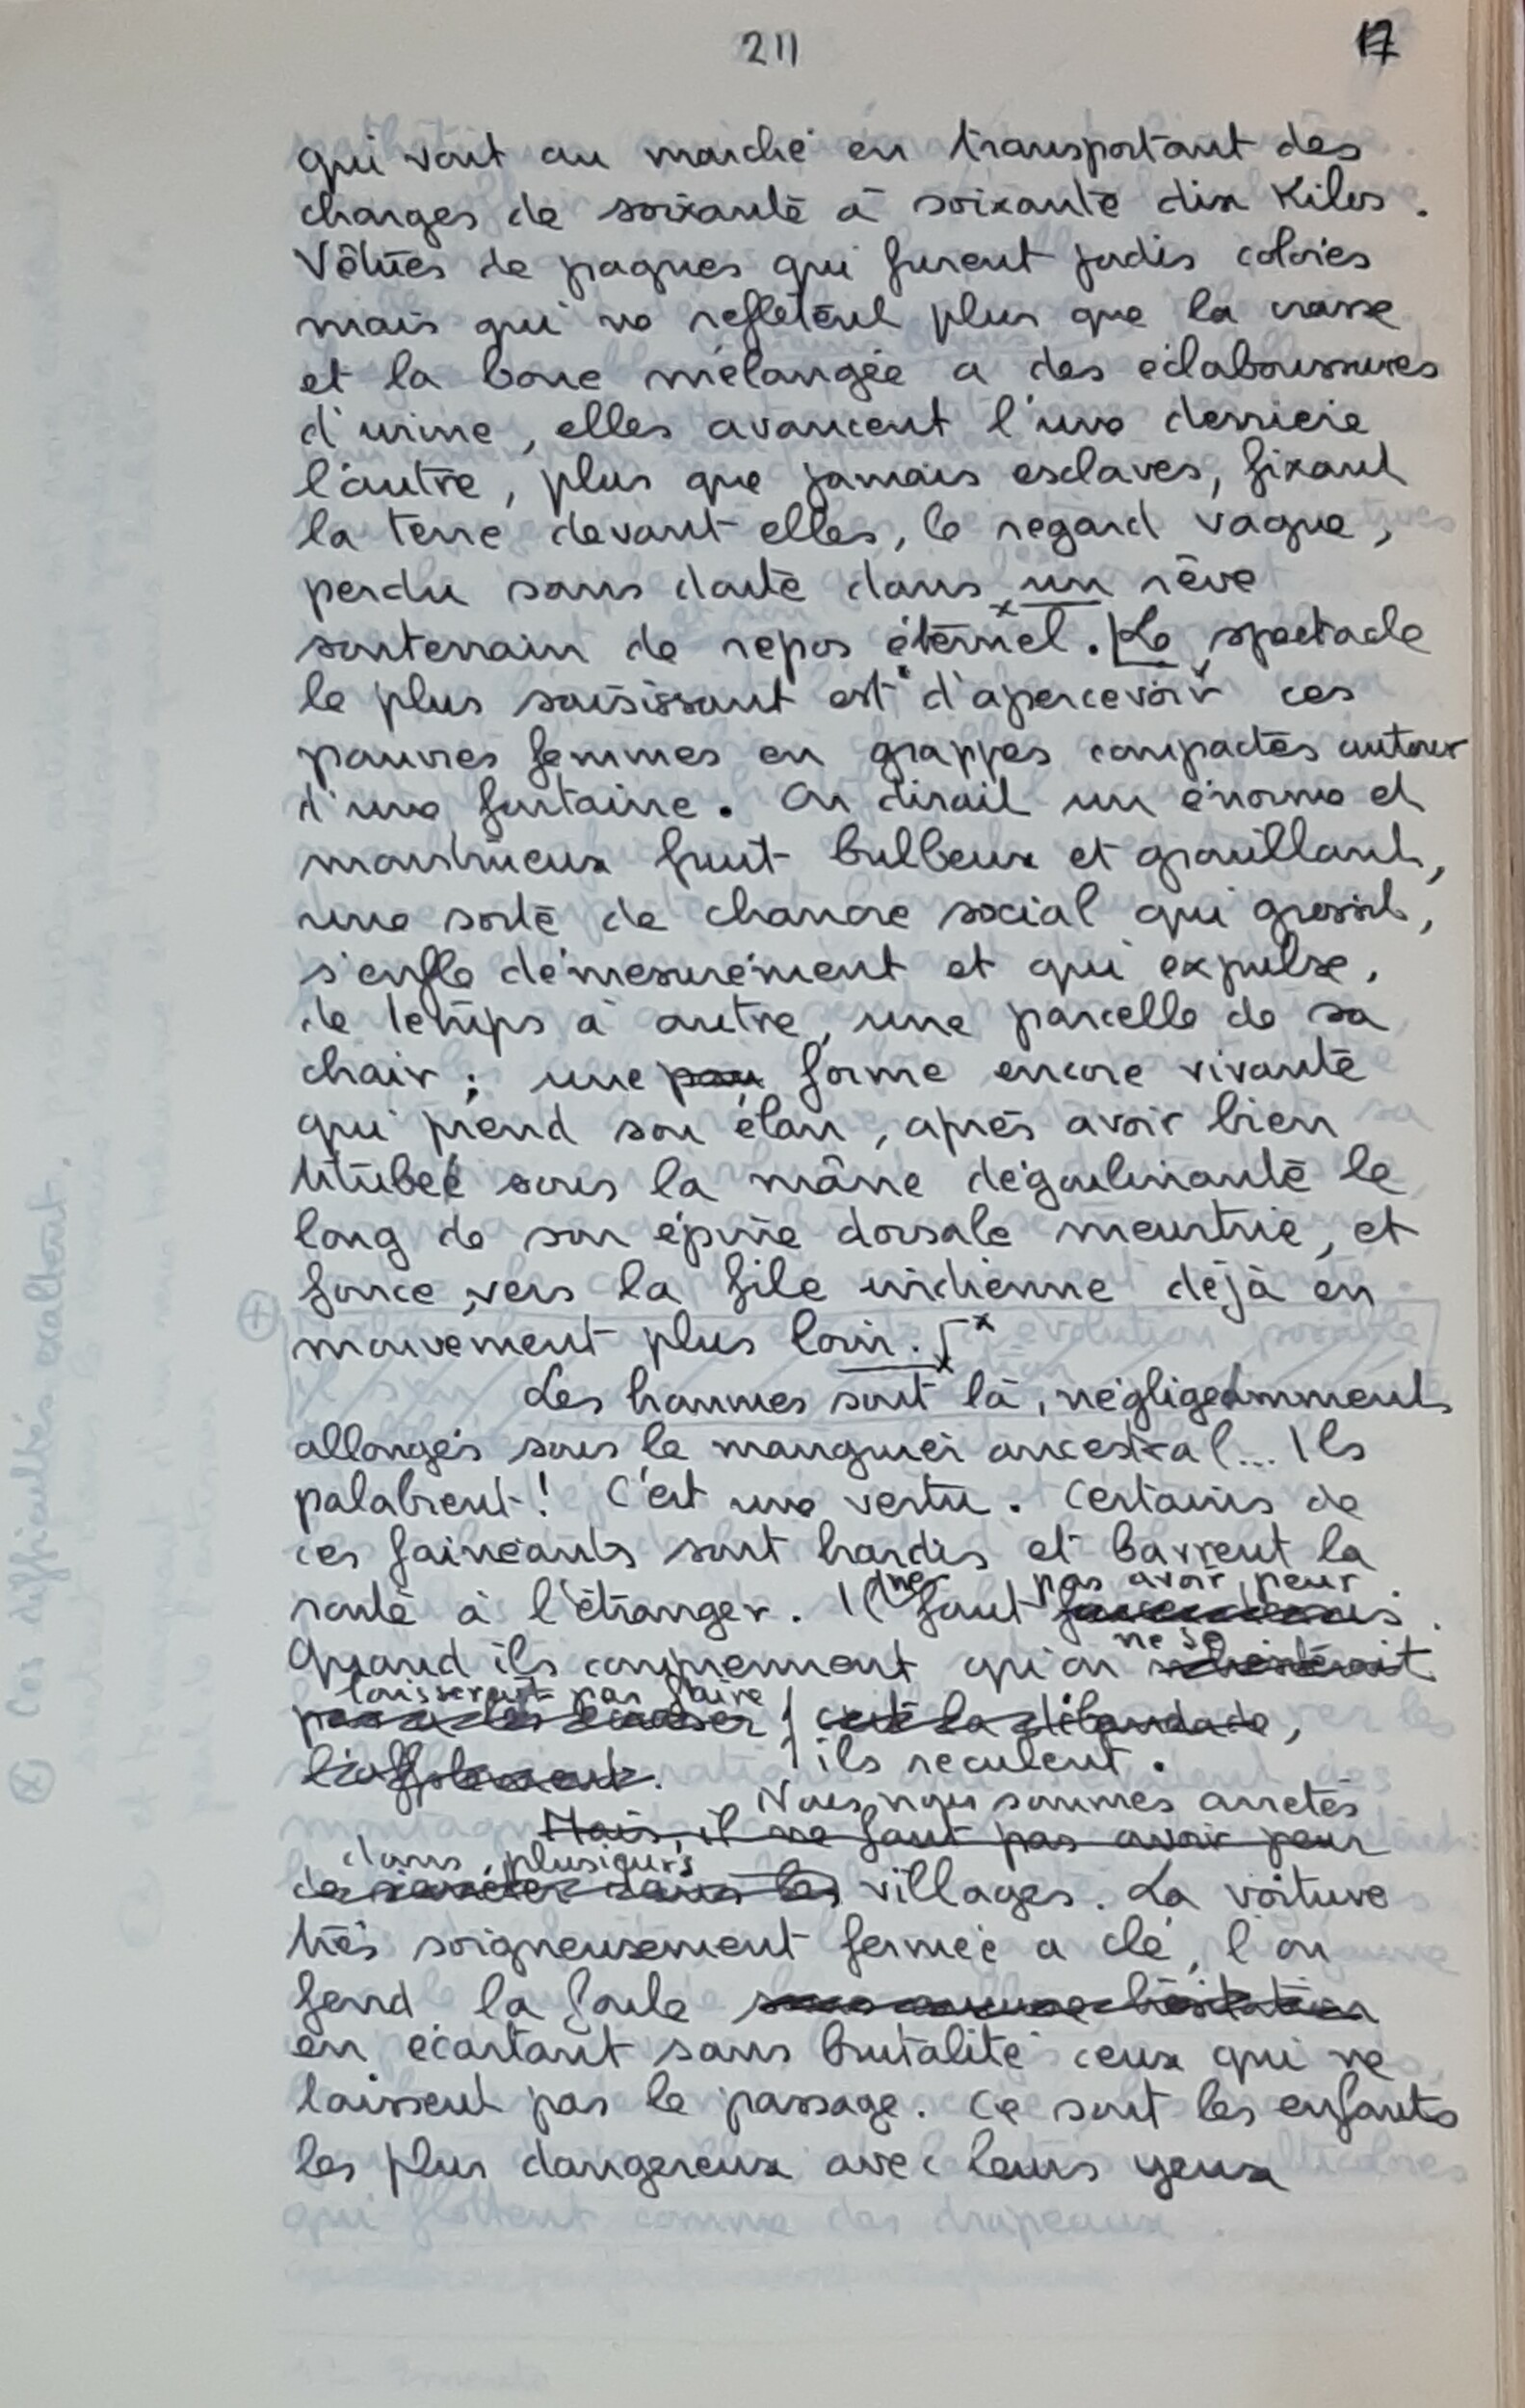 211
17
qui vont au marché en transportant des
charges de soixante à soixante dix Kilos.
Vêtues de pagnes qui furent jadis colorés
mais qui ne reflètent plus que la crasse
et la boue mélangée a des éclaboussures
d'urine, elles avancent l'une derrière
l'autre, plus que jamais esclaves, fixant
la terre devant elles, le regard vague,
perdu sans doute dans un rêve
souterrain de repos éternel. Le spectacle
le plus saisissant est d'apercevoir ces
pauvres femmes en grappes compactes autour
d'une fontaine. On dirait un énorme et
monstrueux fruit bulbeux et grouillant,
une sorte de chancre social qui grossit,
s'enfle démesurément et qui expulse,
de temps à autre, une parcelle de sa
chair ; une forme encore vivante
qui prend son élan, après avoir bien
titubé sous la mâne dégoulinante le
long de son épine dorsale meurtrie, et
fonce, vers la file indienne déjà en
mouvement plus loin. x
Les hommes sont là, négligemment
allongés sous le manguier ancestral... Ils
palabrent ! C'est une vertu. Certains de
ces fainéants sont hardis et barrent la
route à l'étranger. Il ne faut pas avoir peur.
Quand ils comprennent qu'on ne se
laisserait pas faire
ils reculent.
Nous, nous sommes arretés
Mais, il ne faut pas avoir peur
dans plusieurs
de s'arrêter dans les villages. La voiture
très soigneusement fermée a clé, l'on
fend la foule sans aucune hésitation
en écartant sans brutalité ceux qui ne
laissent pas le passage. Ce sont les enfants
les plus dangereux avec leurs yeux